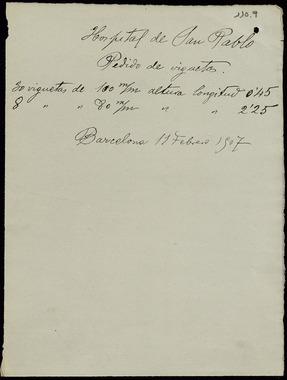 110.9
Hospital de San Pablo
Pedido de viguetas.
30 viguetas de 100 m/m altura longitud 0'45
8 " " 80 m/m " " 2'25
Barcelona 11 Febrero 1907